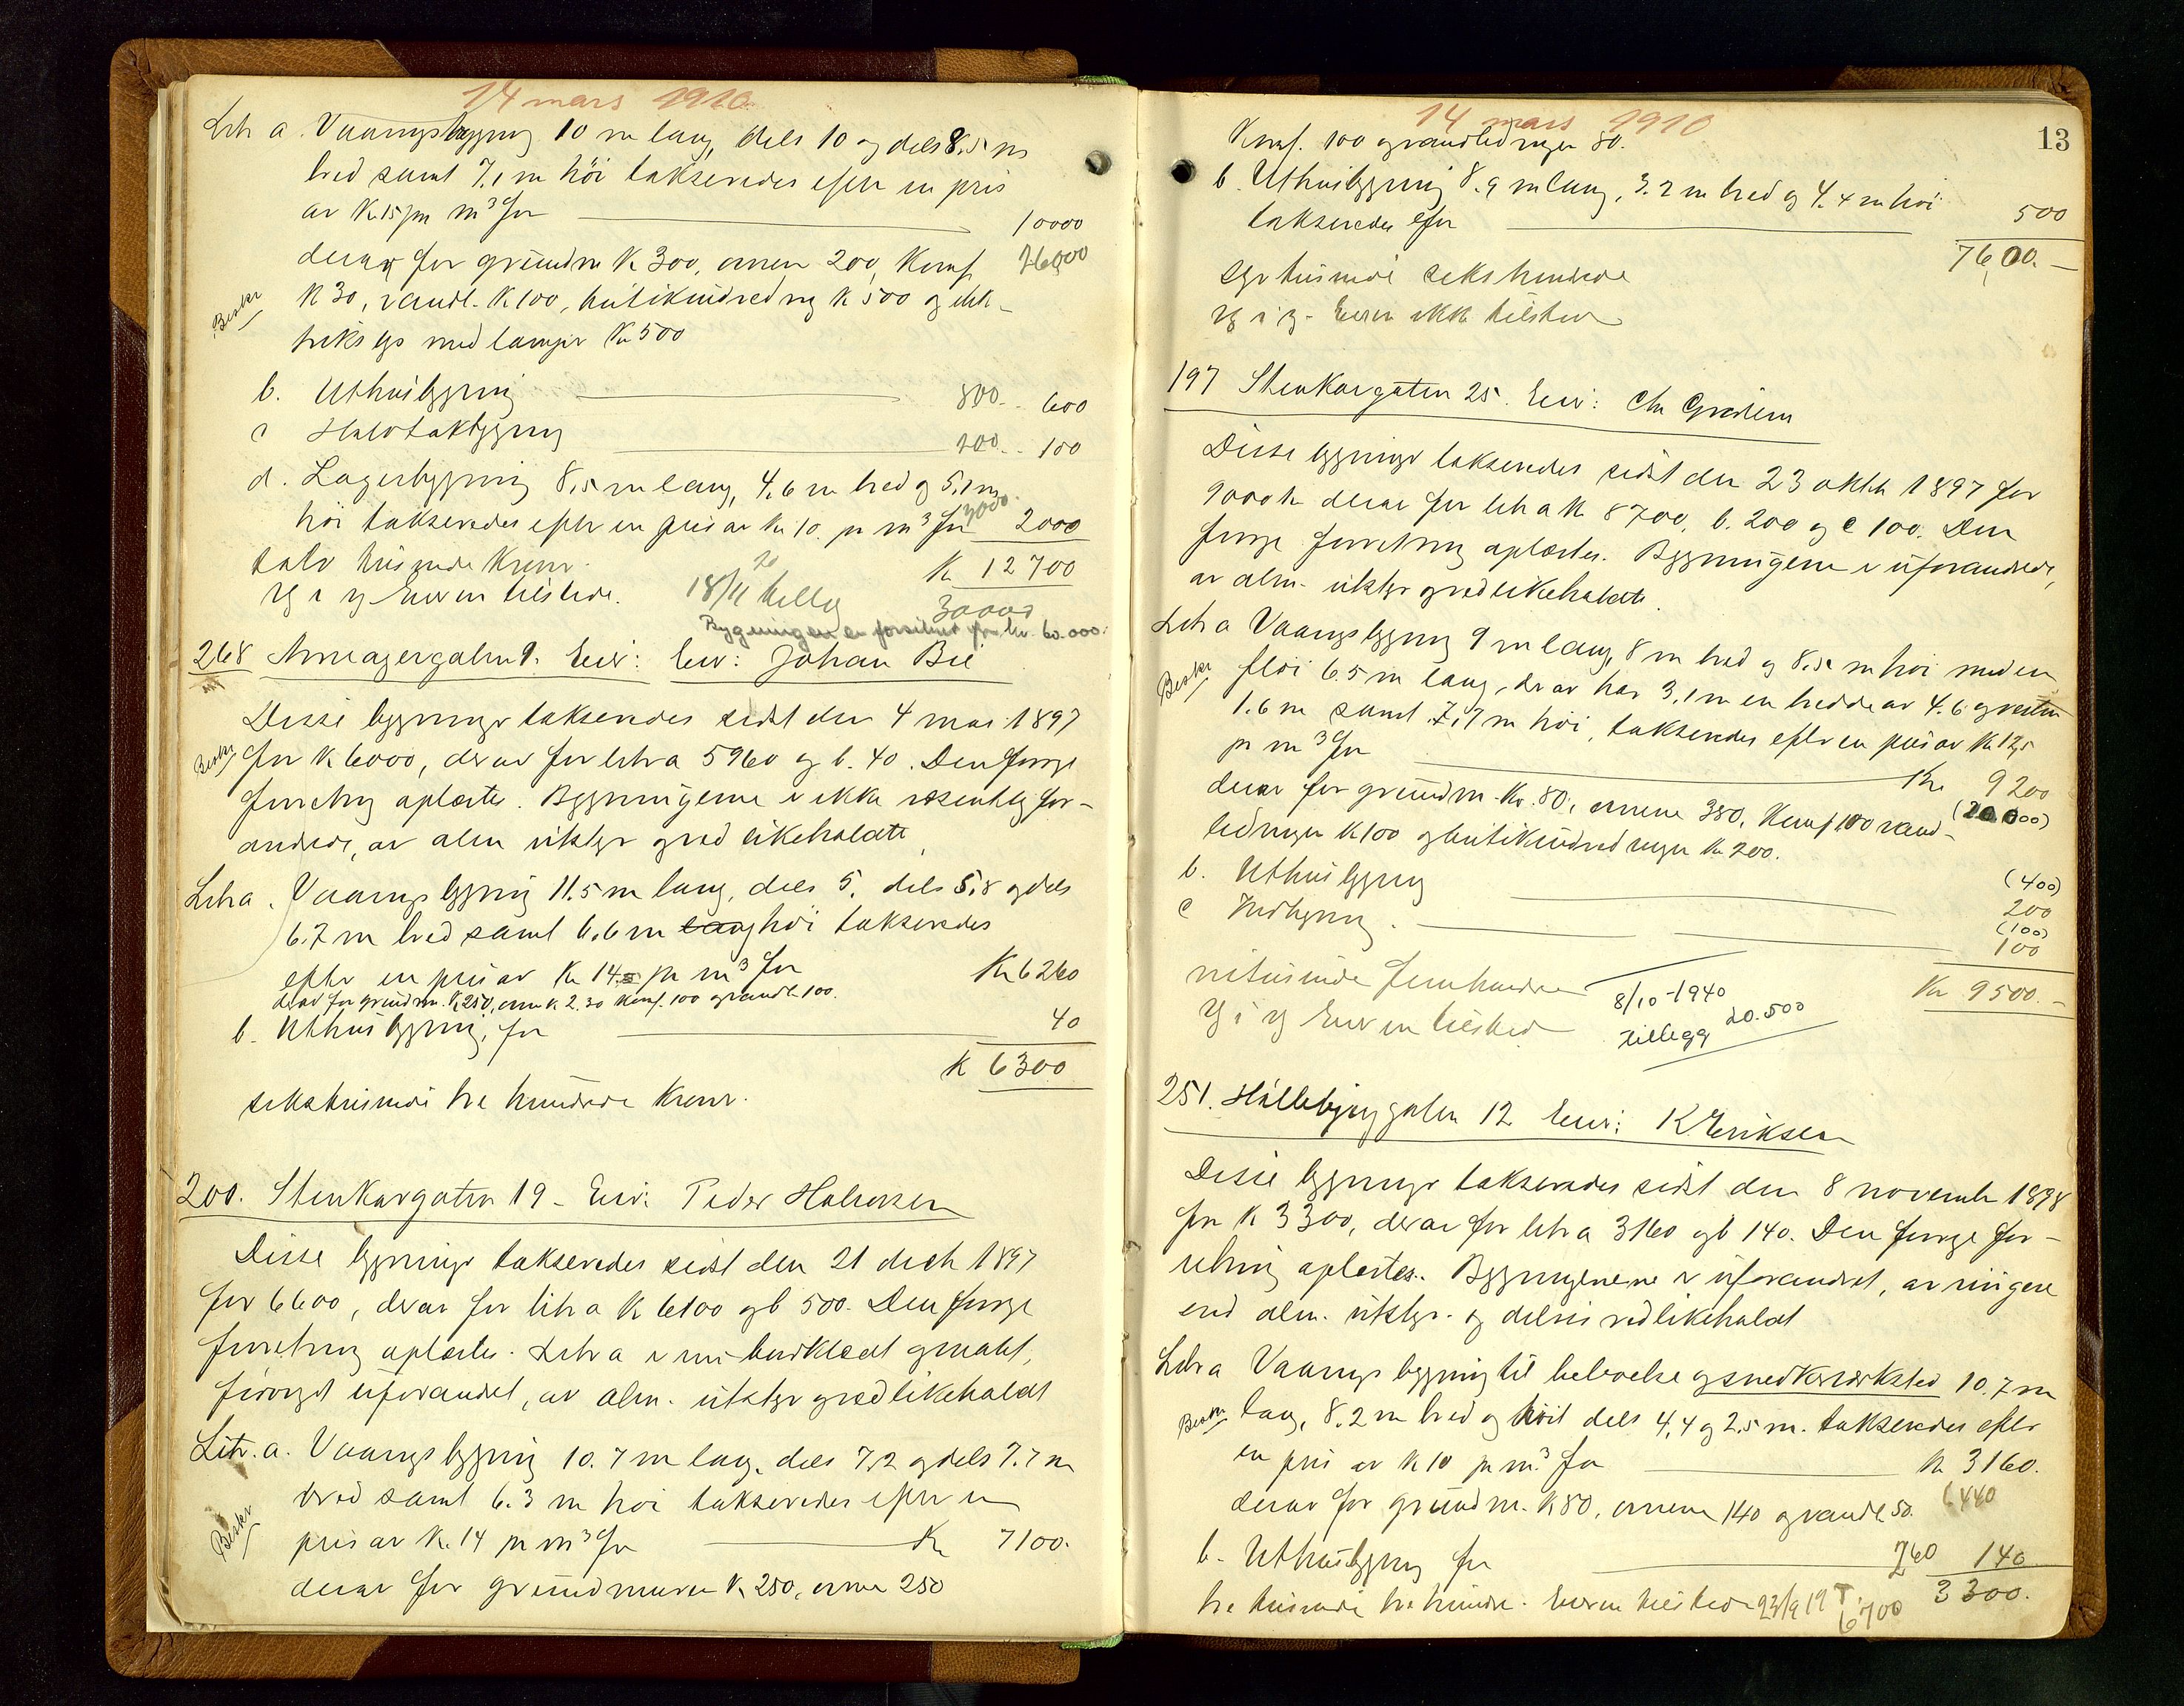 14 mars 1910.
Litr a. Vaaningsbygning 10 m lang, dels 10 og dels 8.5 m
bred samt 7.1 m höi takseredes efter en pris
av K 15 pr m³ for 10000
derav for grundm K 300, ovnen 200, Komf. 26000
Beskr K 30, vandl. K 100, butikindredning K 500 og elek-
trisk lys med lamper Kr 500
b. Uthusbygning 800 - 600
c Halvtakbygning 200 - 100
d. Lagerbygning 8,5 m lang, 4,6 m bred og 5,1 m
höi takseredes efter en pris av kr 10. pr m³ for 3000 2000
tolv tusinde Kroner K 12700
Eieren tilstede. 18/11 20 tillæg 30000
Bygningen er forsikret for kr. 60.000:
268 Armagergaten 9. Eier: Eier: Johan Bie
Disse bygninger takseredes sidst den 4 mai 1897
Beskr for K 6000, derav for litra 5960 og b. 40. Den forrige
forretning oplæstes. Bygningerne er ikke væsentlig for-
andrede, av alm utstyr og vedlikeholdt
Litra. Vaaningsbygning 11.5 m lang, dels 5, dels 5,8 og dels
6.7 m bred samt 6.6 m lang höi takseredes
efter en pris av Kr 14.5 pr m³ for Kr 6260
derav for grundm. K 250, ovn K 230 Komf. 100 og vandl. 100.
b. Uthusbygning, for 40
K 6300
sekstusinde tre hundrede Kroner.
200. Stenkargaten 19 - Eier: Peder Halvorsen
Disse bygninger takseredes sidst den 21 decbr 1897
for 6600, derav for litr a K 6100 og b 500. Den forrige
forretning oplæstes. Litr a er ny-bordklædt og malt,
forövrigt uforandret, av alm. utstyr og vedlikeholdt
Litr. a. Vaaningsbygning 10.7 m lang, dels 7,2 og dels 7.7 m
bred samt 6.3 m höi takseredes efter en
Beskr pris av K. 14 pr m³ for Kr 7100.
derav for grundmuren K 250, ovne 250
14 mars 1910
13
Komf. 100 og vandledningen 80.
b. Uthusbygning 8.9 m lang, 3.2 m bred og 4.4 m höi
takseredes for 500
7600.-
syv tusinde seks hundrede
Eieren ikke tilstede
197 Stenkargaten 25. Eier: Chr Gredem
Disse bygninger takseredes sidst den 23 oktbr 1897 for
9000 kr derav for litr a K 8700, b. 200 og c 100. Den
forrige forretning oplæstes. Bygningerne er uforandrede,
av alm. utstyr og vedlikeholdt.
Litr a Vaaningsbygning 9 m lang, 8 m bred og 8.5 m höi med en
Beskr flöi 6.5 m lang, derav har 3,1 m en bredde av 4.6 og resten
1.6 m samt 7,7 m höi, takseredes efter en pris av Kr 12,5
pr m³ for Kr. 9200
derav for grundm. Kr. 80, ovnene 380, Komf 100 vand- (20.000)
ledningen K 100 og butikindredningen Kr 200.
b. Uthusbygning (400) 200
c Indbygning. (100) 100
nitusinde femhundre Kr 9500.-
Eieren tilsted 8/10-1940
tillegg 20.500
251. Hillebryggaten 12 Eier: K. Eriksen
Disse bygninger takseredes sidst den 8 novembr 1898
for K 3300, derav for litr a 3160 og b 140. Den forrige for-
retning oplæstes. Bygningerne er uforandret, av ringere
end alm. utstyr og delvis vedlikeholdt
Litr a Vaaningsbygning til beboelse og snedkerverksted 10.7 m
Beskr lang, 8.2 m bred og höit dels 4,4 og 2.5 m. takseredes efter
en pris av K 10 pr m³ for Kr 3160.
derav for grundm. K 80, ovnene 140 og vandl. 50. 6440
b. Uthusbygning for 260 140
tre tusinde tre hundre. Eieren tilstede 23/9 19 T. 6700 3300.